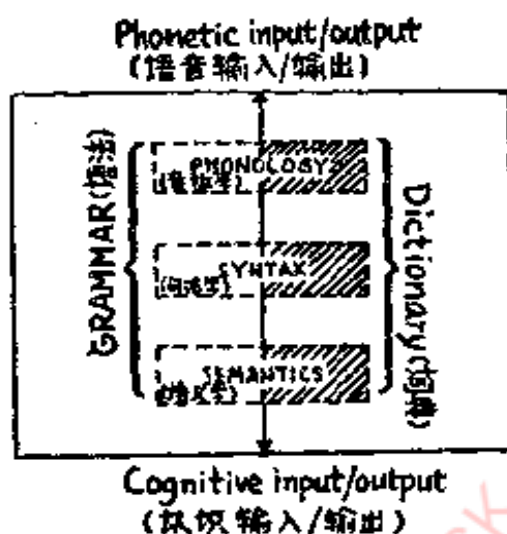 Phonetic input/output
(语音输入/输出)
GRAMMAR(语法)
PHONOLOGY
(音系学)
SYNTAX
(句法学)
SEMANTICS
(语义学)
Dictionary(词典)
Cognitive input/output
(认识输入/输出)